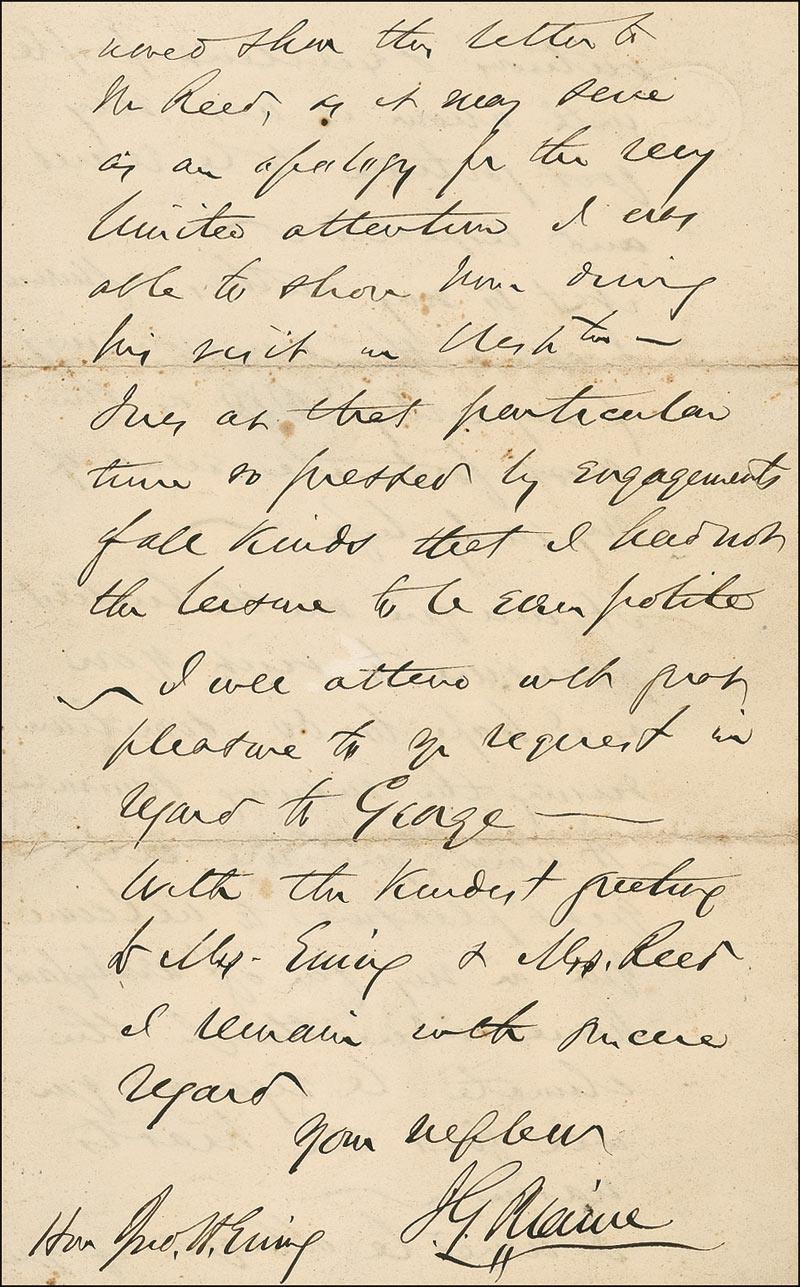 show this letter to
Mr Reed, as it may serve
as an apology for the very
limited attention I was
able to show him during
his visit in Washtn —
I was at that particular
time so pressed by engagements
of all kinds that I had not
the leisure to be even polite
— I will attend with great
pleasure to yr request in
regard to George —
With the kindest greeting
to Mrs. Ewing & Mrs. Reed
I remain with sincere
regard
Your nephew
J. G. Blaine
Hon Jno. H. Ewing